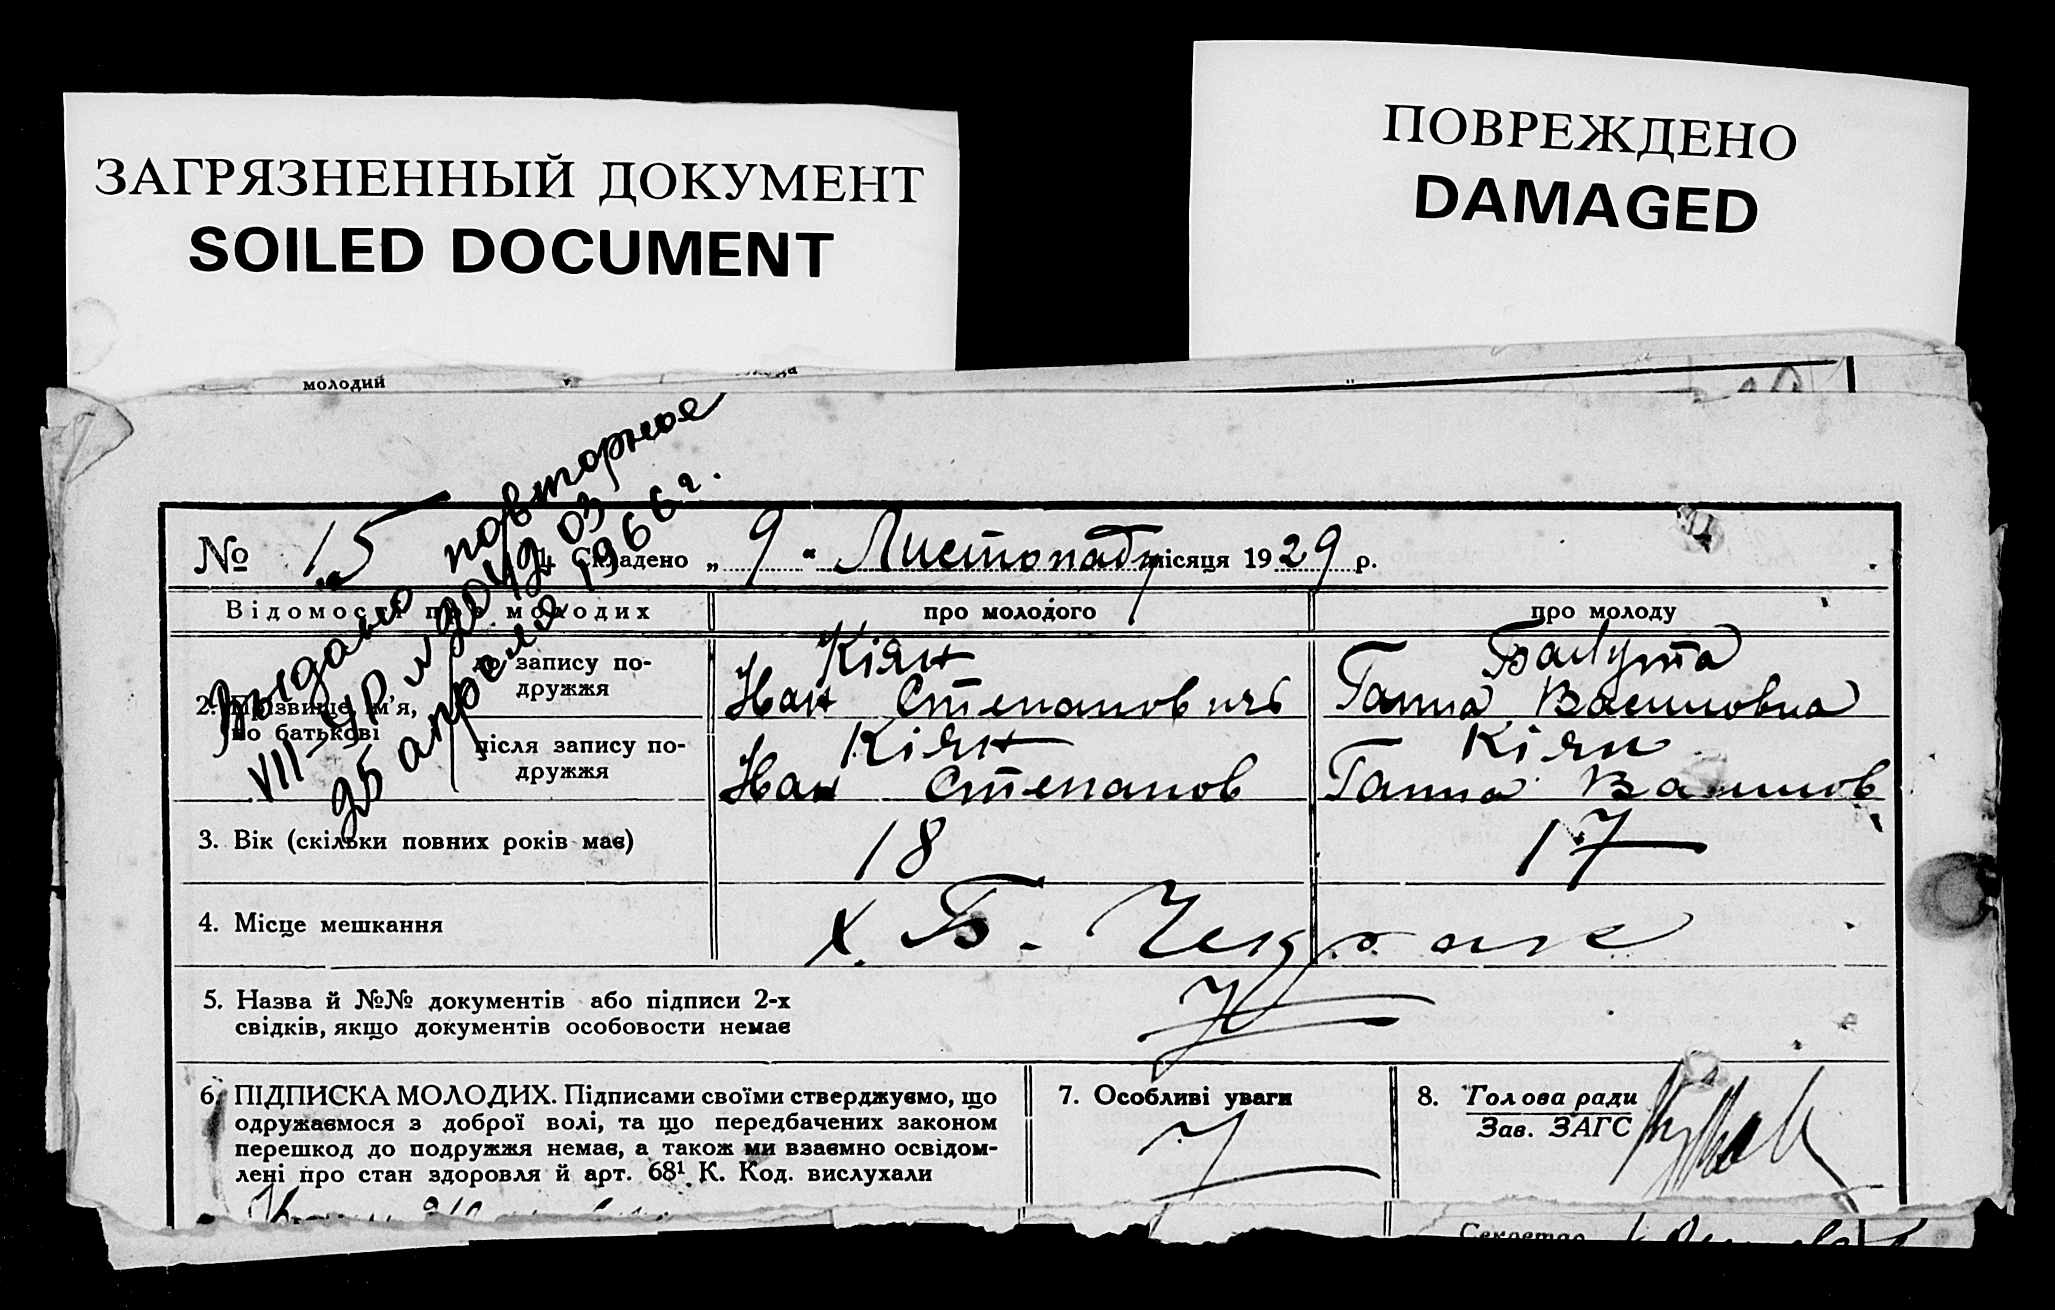 ЗАГРЯЗНЕННЫЙ ДОКУМЕНТ
SOILED DOCUMENT
ПОВРЕЖДЕНО
DAMAGED
молодий
Выдано повторное
VII-УР № 204203
25 апреля 1966 г.
№ 15 1. Складено „ 9 " Листопаду місяця 1929 р.
Відомості про молодих
про молодого
про молоду
2. Прізвище, ім'я, по батькові
до запису по-
дружжя
Кіян
Иан Степанович
Бабута
Ганна Василовна
після запису по-
дружжя
Кіян
Иан Степанов
Кіян
Ганна Василов
3. Вік (скільки повних років має)
18
17
4. Місце мешкання
х. Б.
5. Назва й №№ документів або підписи 2-х
свідків, якщо документів особовости немає
6. ПІДПИСКА МОЛОДИХ. Підписами своїми стверджуємо, що
одружаємося з доброї волі, та що передбачених законом
перешкод до подружжя немає, а також ми взаємно освідом-
лені про стан здоровля й арт. 68¹ К. Код. вислухали
7. Особливі уваги
8. Голова ради
Зав. ЗАГС
Секретар